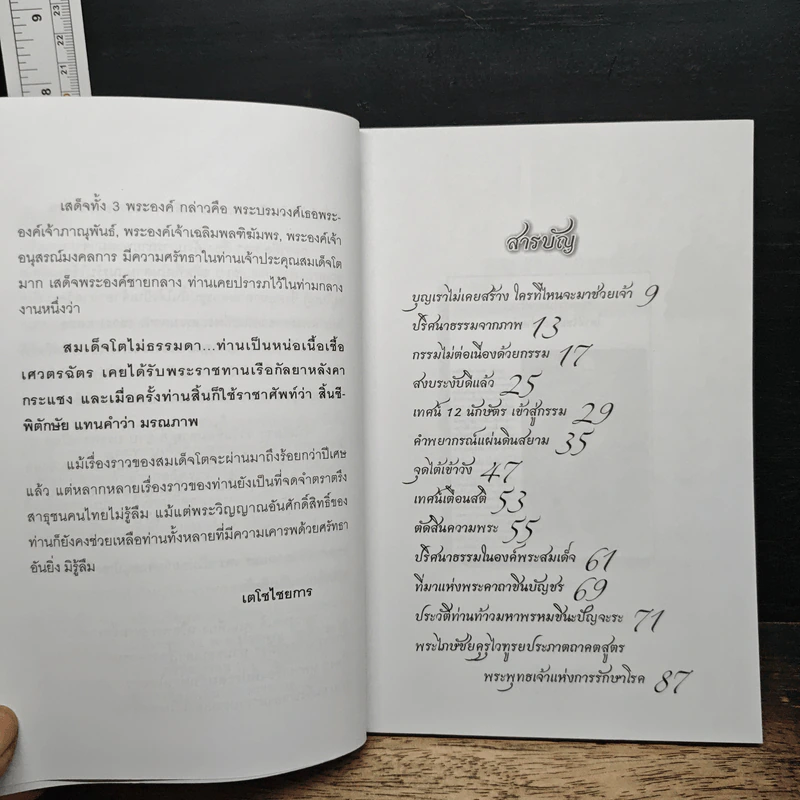 9
23
22
21
8
20
เสด็จทั้ง 3 พระองค์ กล่าวคือ พระบรมวงศ์เธอพระ-
องค์เจ้าภาณุพันธ์, พระองค์เจ้าเฉลิมพลฑิฆัมพร, พระองค์เจ้า
อนุสรณ์มงคลการ มีความศรัทธาในท่านเจ้าประคุณสมเด็จโต
มาก เสด็จพระองค์ชายกลาง ท่านเคยปรารภไว้ในท่ามกลาง
งานหนึ่งว่า
สมเด็จโตไม่ธรรมดา...ท่านเป็นหน่อเนื้อเชื้อ
เศวตรฉัตร เคยได้รับพระราชทานเรือกัลยาหลังคา
กระแชง และเมื่อครั้งท่านสิ้นก็ใช้ราชาศัพท์ว่า สิ้นชี-
พิตักษัย แทนคำว่า มรณภาพ
แม้เรื่องราวของสมเด็จโตจะผ่านมาถึงร้อยกว่าปีเศษ
แล้ว แต่หลากหลายเรื่องราวของท่านยังเป็นที่จดจำตราตรึง
สาธุชนคนไทยไม่รู้ลืม แม้แต่พระวิญญาณอันศักดิ์สิทธิ์ของ
ท่านก็ยังคงช่วยเหลือท่านทั้งหลายที่มีความเคารพด้วยศรัทธา
อันยิ่ง มิรู้ลืม
เตโชไชยการ
สารบัญ
บุญเราไม่เคยสร้าง ใครที่ไหนจะมาช่วยเจ้า 9
ปริศนาธรรมจากภาพ 13
กรรมไม่ต่อเนื่องด้วยกรรม 17
สงบระงับดีแล้ว 25
เทศน์ 12 นักษัตร เข้าสู่กรรม 29
คำพยากรณ์แผ่นดินสยาม 35
จุดไต้เข้าวัง 47
เทศน์เตือนสติ 53
ตัดสินความพระ 55
ปริศนาธรรมในองค์พระสมเด็จ 61
ที่มาแห่งพระคาถาชินบัญชร 69
ประวัติท่านท้าวมหาพรหมชินะปัญจะระ 71
พระไภษัชยคุรุไวฑูรยประภาตถาคตสูตร
พระพุทธเจ้าแห่งการรักษาโรค 87